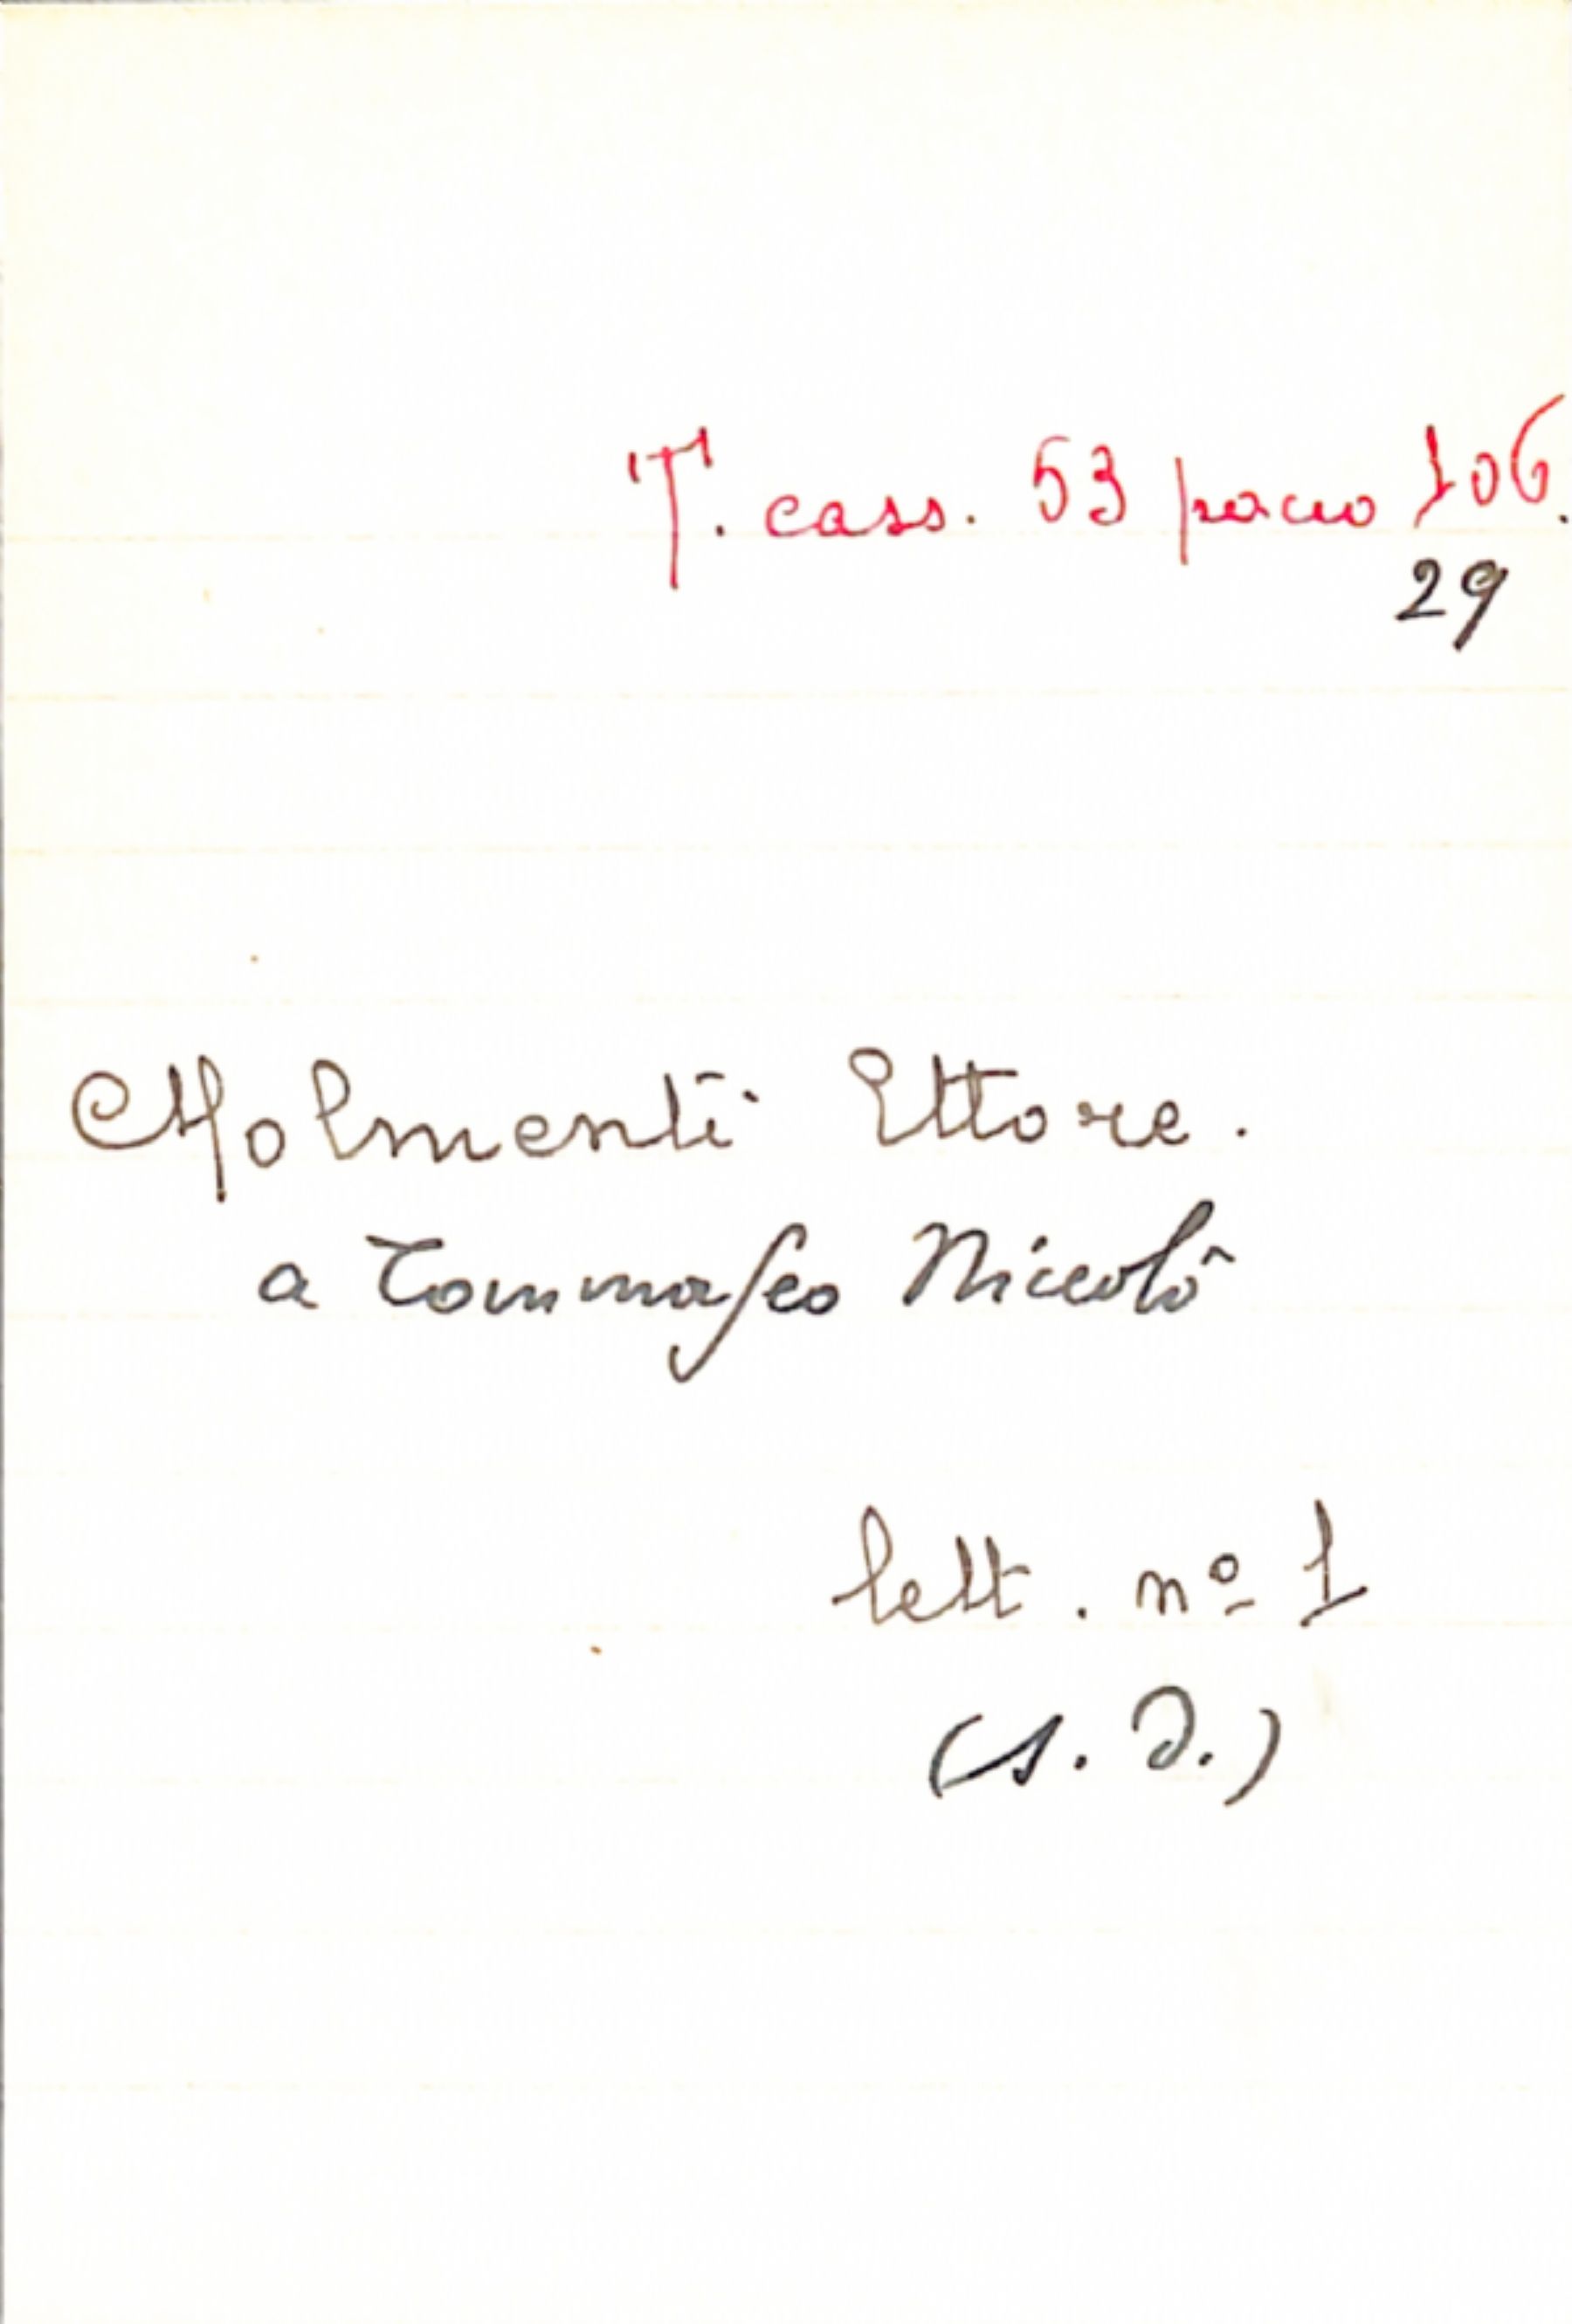 T. cass. 53 pacco 106.
29
Molmenti Ettore.
a Tommaseo Niccolò
lett. nº 1
(s. d.)